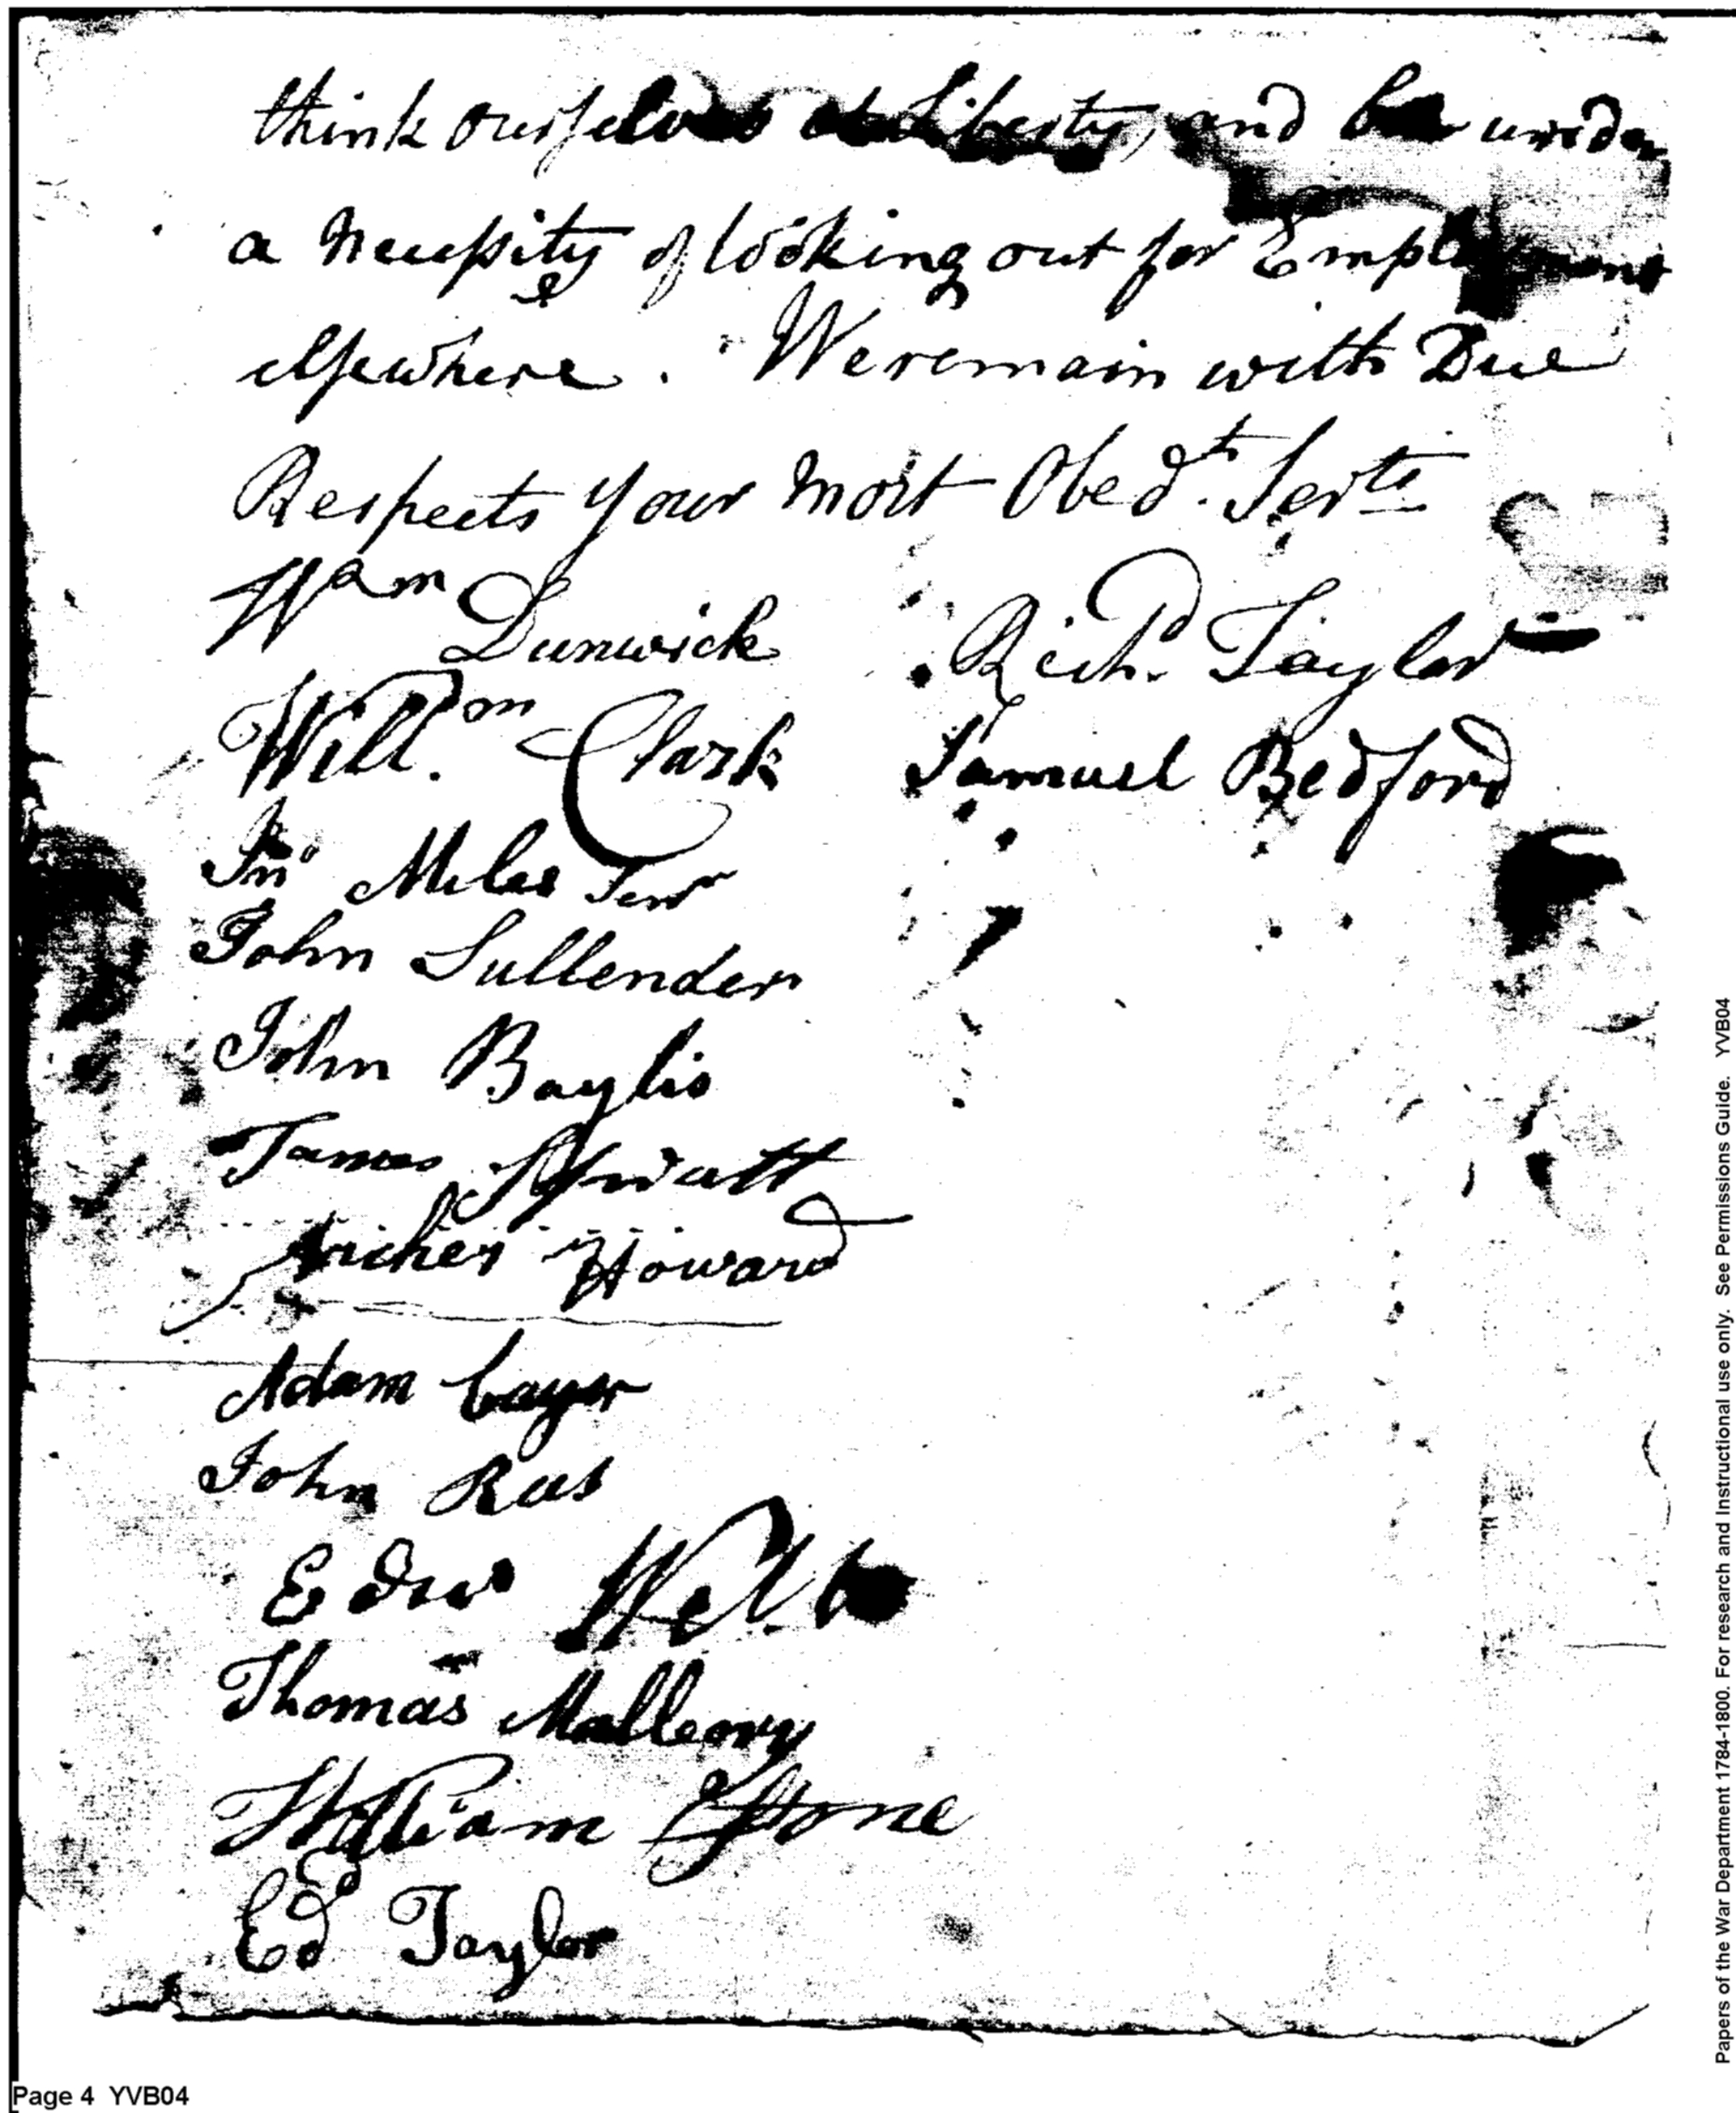 think ourselves at Liberty, and be under
a Necessity of looking out for Employment
elsewhere. We remain with Due
Respects your most Obedt. Servts
Wam Dunwick Richd. Taylor
Willm. Clark Samuel Bedford
Jno Miles Senr
John Sullender
John Baylis
James
Archer Howard
Adam
John
Edwd
Thomas Malleory
William Stone
Ed Taylor
Page 4 YVB04
Papers of the War Department 1784-1800. For research and Instructional use only. See Permissions Guide. YVB04